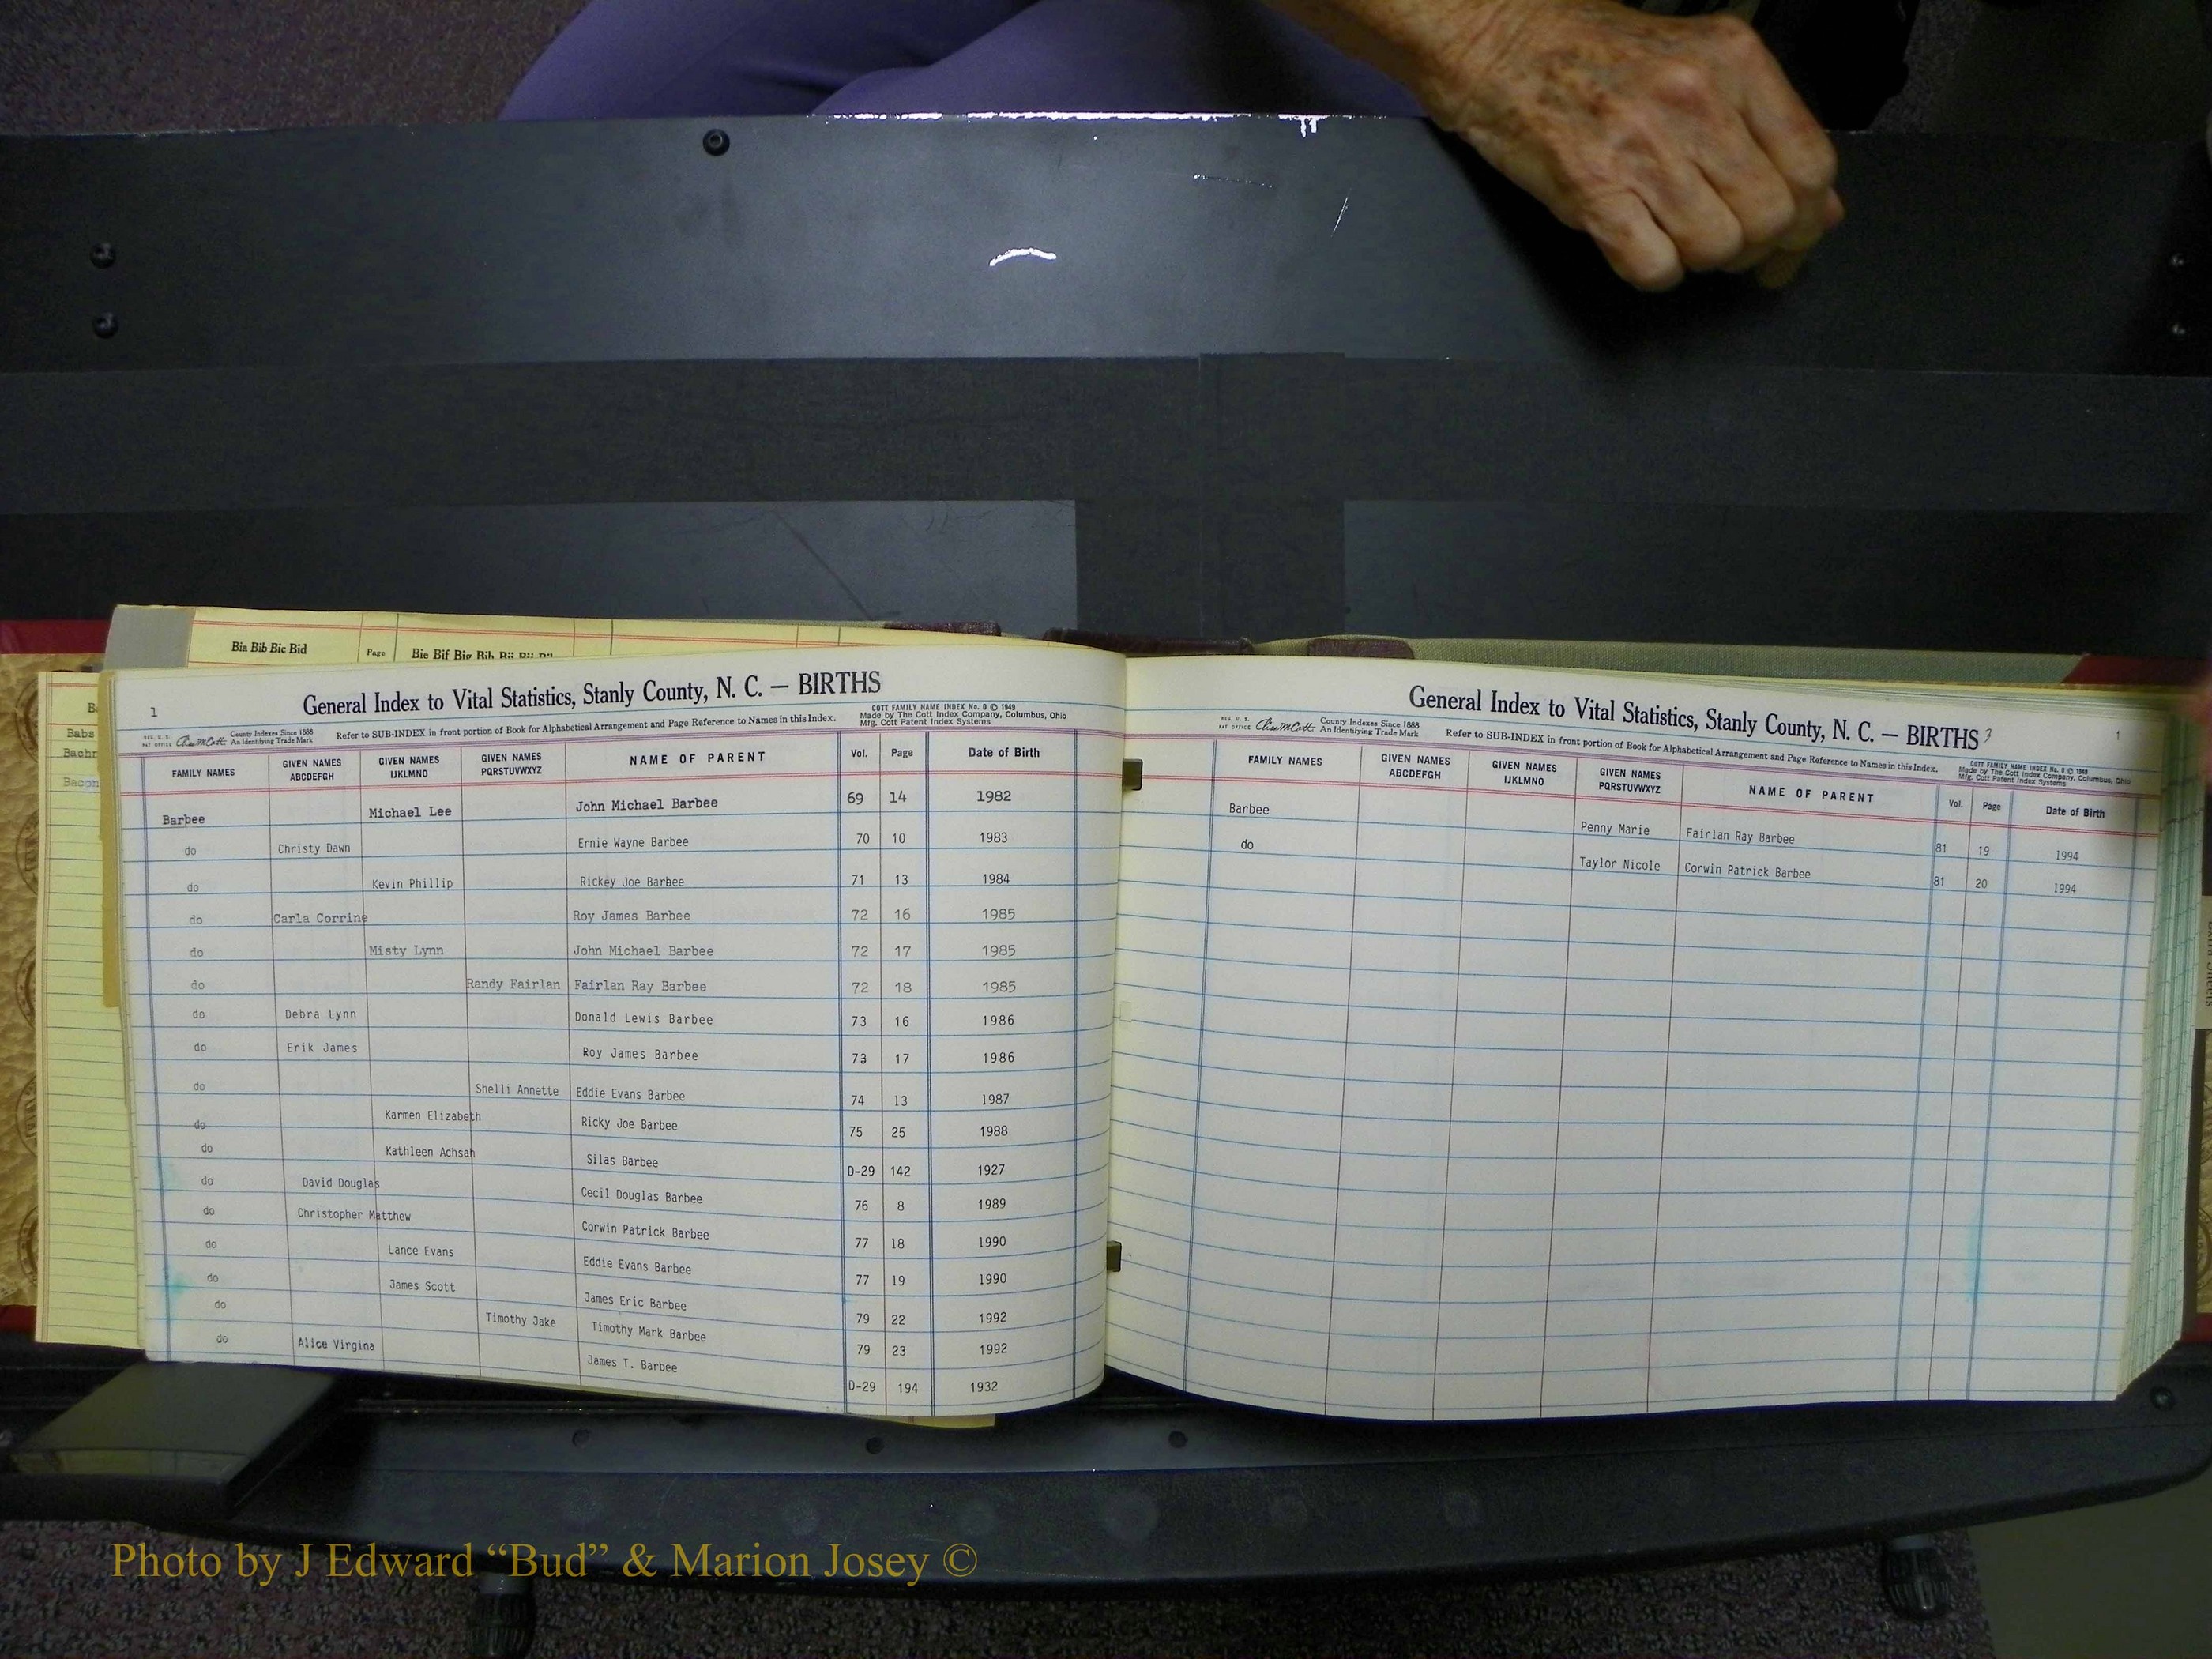 Bia Bib Bic Bid Page Bie Bif Big Bih Bii Bij
Babs
Bachr
Bacon
General Index to Vital Statistics, Stanly County, N. C. — BIRTHS
1
REG. U. S. PAT OFFICE County Indexes Since 1888 An Identifying Trade Mark
Refer to SUB-INDEX in front portion of Book for Alphabetical Arrangement and Page Reference to Names in this Index.
COTT FAMILY NAME INDEX No. 0 © 1949
Made by The Cott Index Company, Columbus, Ohio
Mfg. Cott Patent Index Systems
FAMILY NAMES GIVEN NAMES ABCDEFGH GIVEN NAMES IJKLMNO GIVEN NAMES PQRSTUVWXYZ NAME OF PARENT Vol. Page Date of Birth
Barbee Michael Lee John Michael Barbee 69 14 1982
do Christy Dawn Ernie Wayne Barbee 70 10 1983
do Kevin Phillip Rickey Joe Barbee 71 13 1984
do Carla Corrine Roy James Barbee 72 16 1985
do Misty Lynn John Michael Barbee 72 17 1985
do Randy Fairlan Fairlan Ray Barbee 72 18 1985
do Debra Lynn Donald Lewis Barbee 73 16 1986
do Erik James Roy James Barbee 73 17 1986
do Shelli Annette Eddie Evans Barbee 74 13 1987
do Karmen Elizabeth Ricky Joe Barbee 75 25 1988
do Kathleen Achsah Silas Barbee D-29 142 1927
do David Douglas Cecil Douglas Barbee 76 8 1989
do Christopher Matthew Corwin Patrick Barbee 77 18 1990
do Lance Evans Eddie Evans Barbee 77 19 1990
do James Scott James Eric Barbee 79 22 1992
do Timothy Jake Timothy Mark Barbee 79 23 1992
do Alice Virgina James T. Barbee D-29 194 1932
General Index to Vital Statistics, Stanly County, N. C. — BIRTHS 3
1
REG. U. S. PAT OFFICE County Indexes Since 1888 An Identifying Trade Mark
Refer to SUB-INDEX in front portion of Book for Alphabetical Arrangement and Page Reference to Names in this Index.
COTT FAMILY NAME INDEX No. 0 © 1949
Made by The Cott Index Company, Columbus, Ohio
Mfg. Cott Patent Index Systems
FAMILY NAMES GIVEN NAMES ABCDEFGH GIVEN NAMES IJKLMNO GIVEN NAMES PQRSTUVWXYZ NAME OF PARENT Vol. Page Date of Birth
Barbee Penny Marie Fairlan Ray Barbee 81 19 1994
do Taylor Nicole Corwin Patrick Barbee 81 20 1994
Photo by J Edward “Bud” & Marion Josey ©